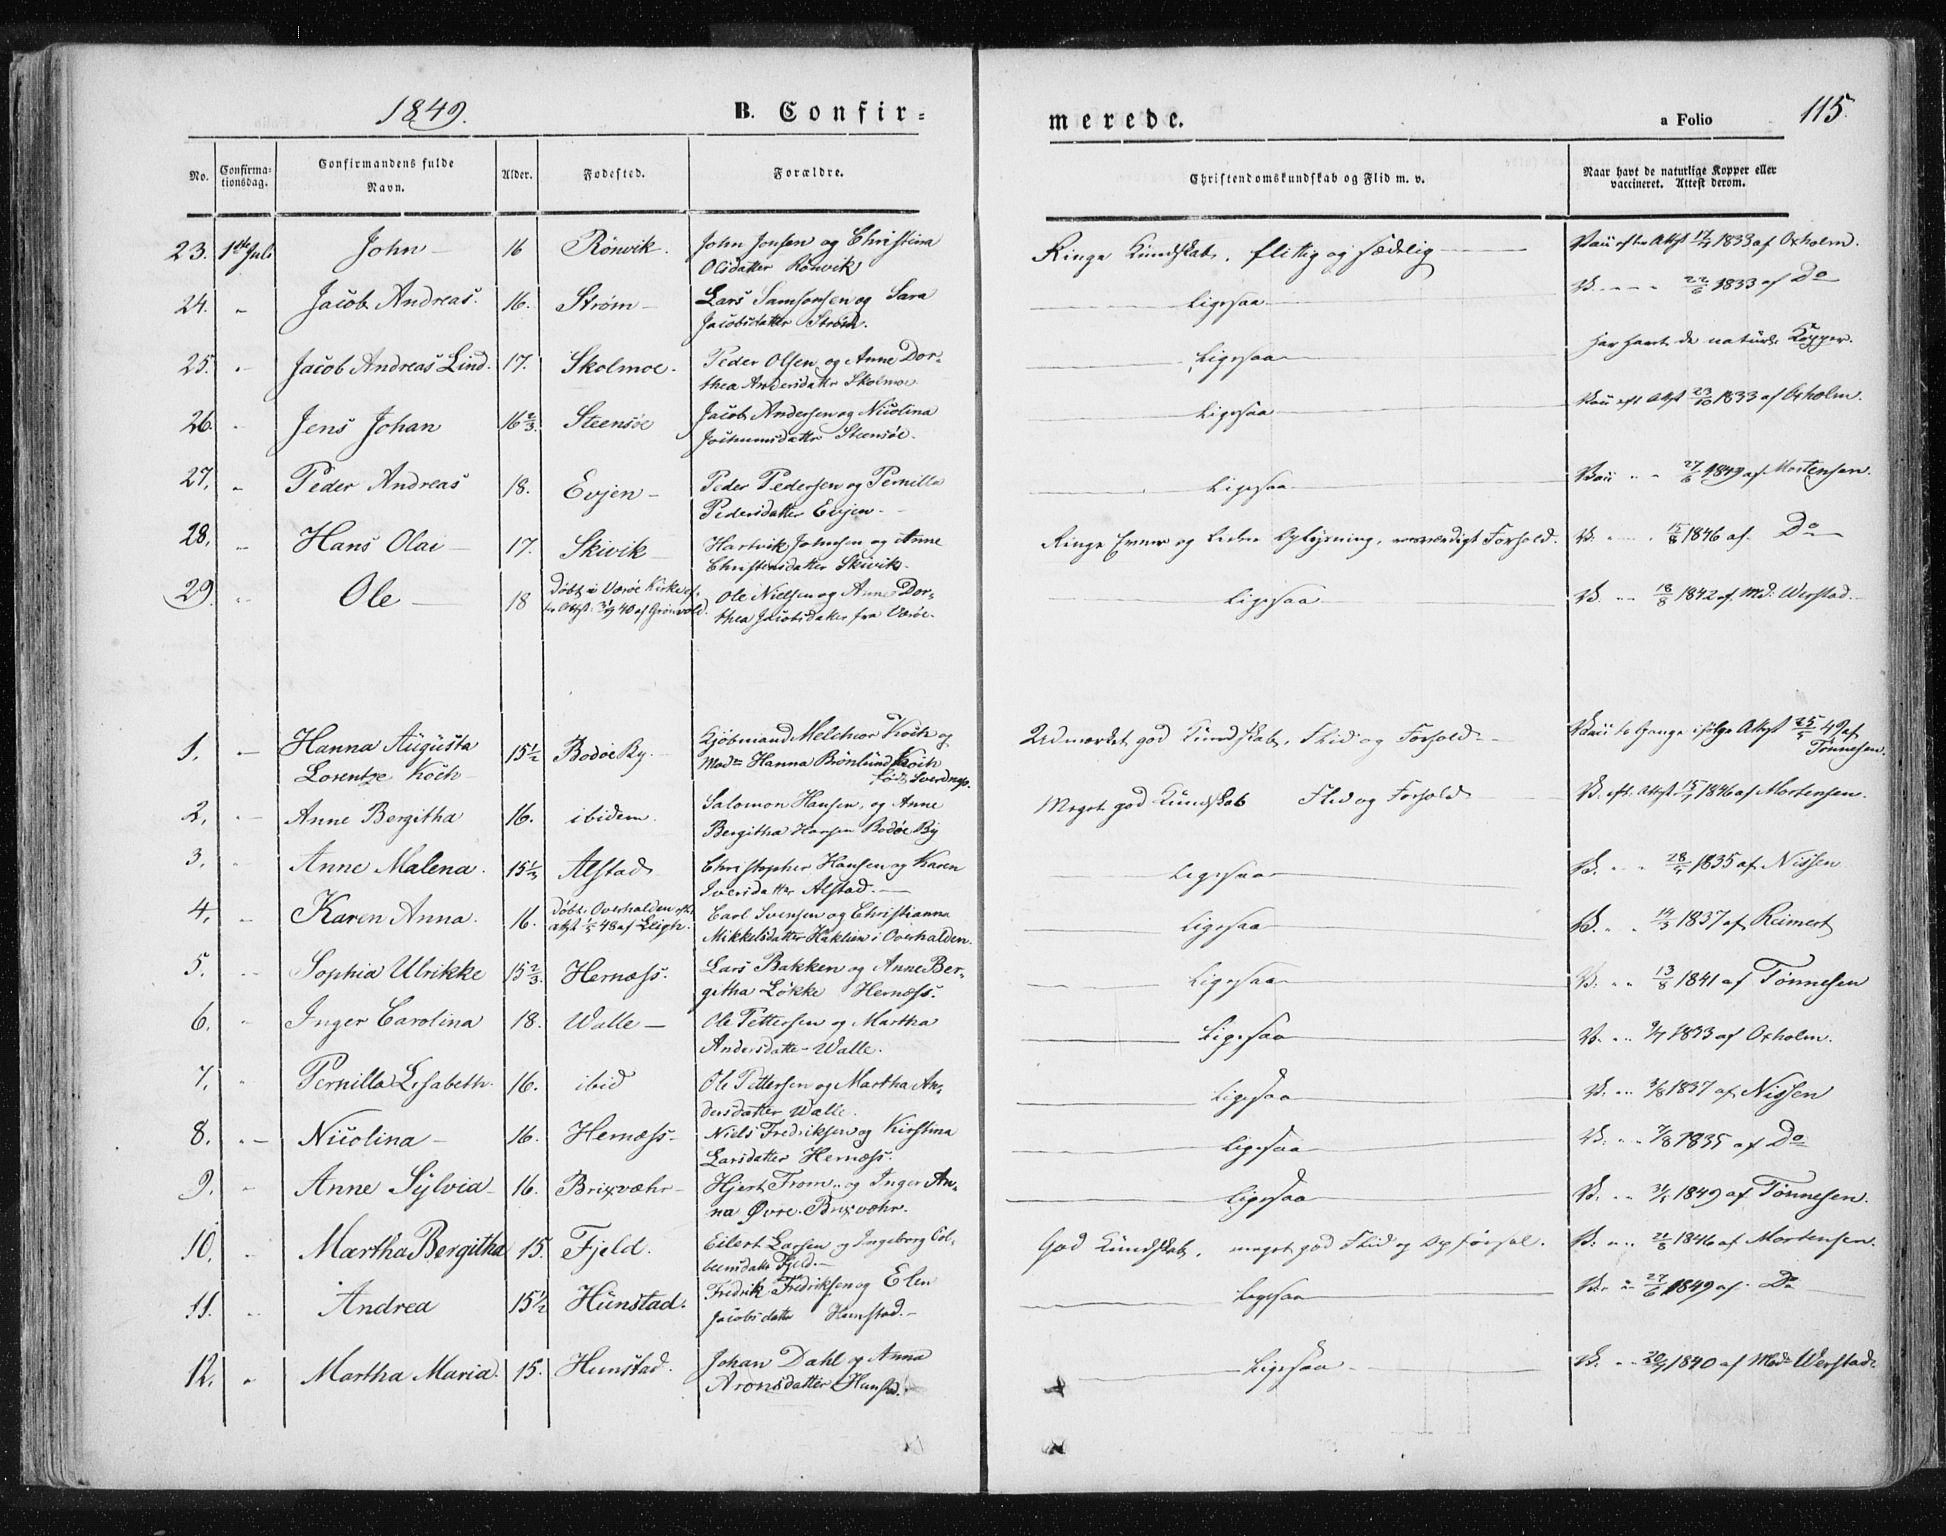 1849.
B. Confir=
merede.
a Folio
115.
No.
Confirma-
tionsdag.
Confirmandens fulde
Navn.
Alder.
Fødested.
Forældre.
Christendomskundskab og Flid m. v.
Naar havt de naturlige Kopper eller
vaccineret. Attest derom.
23. 1ste Juli John 16 Rönvik. John Jonsen og Christina
Olsdatter Rönvik
Ringe Kundskab, flittig og sædelig
1833 af Oxholm.
24. " Jacob Andreas. 16. Strøm Lars Samsonsen og Sara
Jacobsdatter Strøm.
Ligesaa
V. 22/6 1833 af Do
25. " Jacob Andreas Lind. 17. Skolmoe. Peder Olsen og Anne Dor-
thea Andersdatter Skolmoe
Ligesaa
har havt de naturl. Kopper.
26. " Jens Johan 16 2/3. Steensöe Jacob Andersen og Nicolina
Jochumsdatter Steensöe.
Ligesaa
23/10 1833 af Oxholm.
27. " Peder Andreas 18. Evjen Peder Pedersen og Pernilla
Pedersdatter Evjen.
Ligesaa
27/6 1849 af Mortensen.
28. " Hans Olai 17. Skivik Hartvik Johnsen og Anne
Christensdatter Skivik.
Ringe Evner og Oplysning, Forhold.
V. 15/8 1846 af Do
29. " Ole 18 Döbt i Værøe Kirke ef-
ter Attest 40 af Grönvold.
Ole Nielsen og Anne Dor-
thea Jacobsdatter fra Værøe.
Ligesaa
V. " 18/8 1842 af Md: Werstad.
1. Hanna Augusta
Lorentze Koch
15 1/2 Bodöe By. Kjöbmand Melchior Koch og
Mad Hanna Brönlund Koch
föd Sverdrup.
Udmærket god Kundskab, Flid og Forhold
to Gange ifølge Attest 25/5 49 af
Tönnesen.
2. Anne Bergitha 16. ibidem. Salomon Hansen, og Anne
Bergitha Hansen Bodöe By
Meget god Kundskab Flid og Forhold
1846 af Mortensen.
3. " Anne Malena. Alstad Christopher Hansen og Karen
Iversdatter Alstad.
Ligesaa
V. " " 1835 af Nissen
4. " Karen Anna. 16. döbt i Overhalden
48 af Leigh. Carl Svensen og Christianna
Mikkelsdatter i Overhalden.
Ligesaa
V. " " 1837 af Reimert
5. " Sophia Ulrikke 15 2/3. Hernæss. Lars Bakken og Anne Ber-
githa Lökke Hernæss.
Ligesaa
V. " " 13/8 1841 af Tönnesen
6. " Inger Carolina 18. Walle Ole Pettersen og Martha
Andersdatter Walle.
Ligesaa
V. " " 1833 af Oxholm.
7. " Pernilla Lisabeth. 16. ibid Ole Pettersen og Martha An-
dersdatter Walle.
Ligesaa
V. " " 3/8 1837 af Nissen
8. " Nicolina 16. Hernæss. Niels Fredriksen og Kirstina
Larsdatter Hernæss.
Ligesaa
V. " " 7/8 1835 af Do
9. " Anne Sylvia 16. Brixvæhr Hjert From og Inger An-
na Øvre Brixvæhr.
Ligesaa
V. " " 1849 af Tönnesen.
10. " Martha Bergitha 15. Fjeld. Eilert Larsen og Ingeborg Col-
Fjeld.
God Kundskab, meget god Flid og Opførsel.
V. " " 1846 af Mortensen.
11. " Andrea 15 1/2 Hunstad. Fredrik Fredriksen og Elen
Jacobsdatter Hunstad.
Ligesaa
V. " 27/6 1849 af Do
12. " Martha Maria. 15. Hunstad. Johan Dahl og Anna
Aronsdatter Hunstad.
Ligesaa
V. " " 1840 af Md: Werstad.